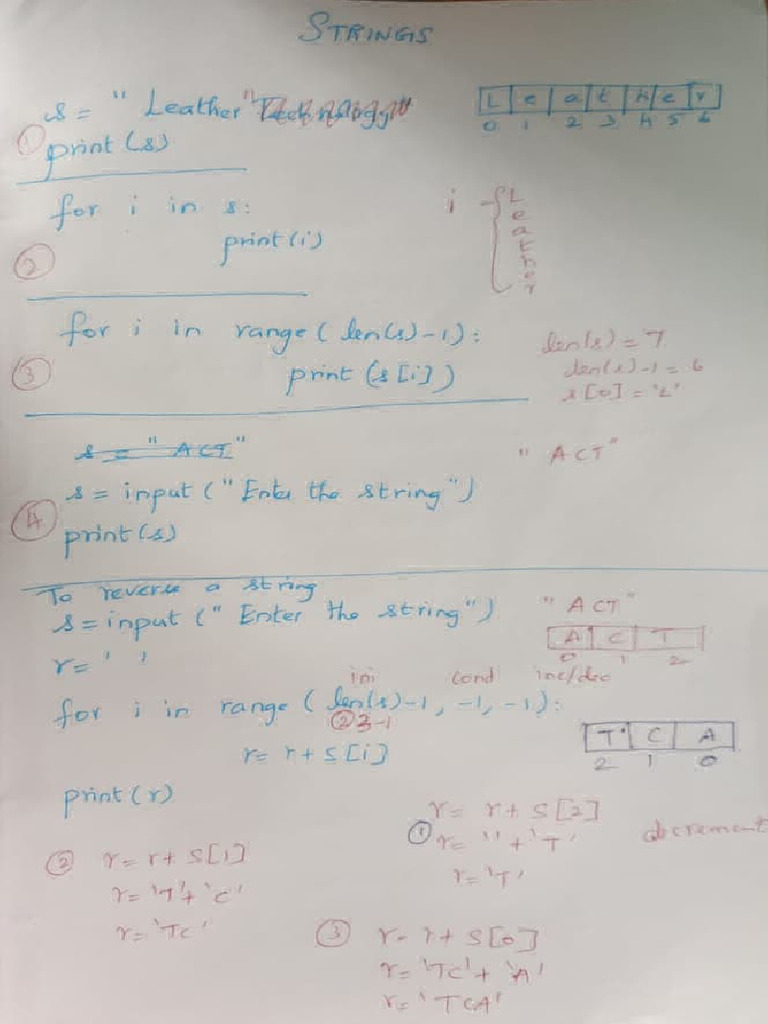 STRINGS
s = " Leather"
L e a t h e r
0 1 2 3 4 5 6
① print (s)
for i in s:
i L e a t h e r
print (i)
②
for i in range ( len(s)-1):
len(s) = 7
③ print (s [i])
len(s)-1 = 6
s [0] = 'L'
s = " ACT"
" ACT"
s = input (" Enter the string")
④
print (s)
To reverse a string
s = input (" Enter the string")
" ACT"
A C T
0 1 2
r = ' '
ini cond inc/dec
for i in range ( len(s)-1, -1, -1):
② 3-1
r = r + s [i]
T C A
2 1 0
print (r)
r = r + s [2]
① r = '' + 'T'
decrement
r = 'T'
② r = r + s [1]
r = 'T' + 'C'
r = 'TC'
③ r = r + s [0]
r = 'TC' + 'A'
r = 'TCA'